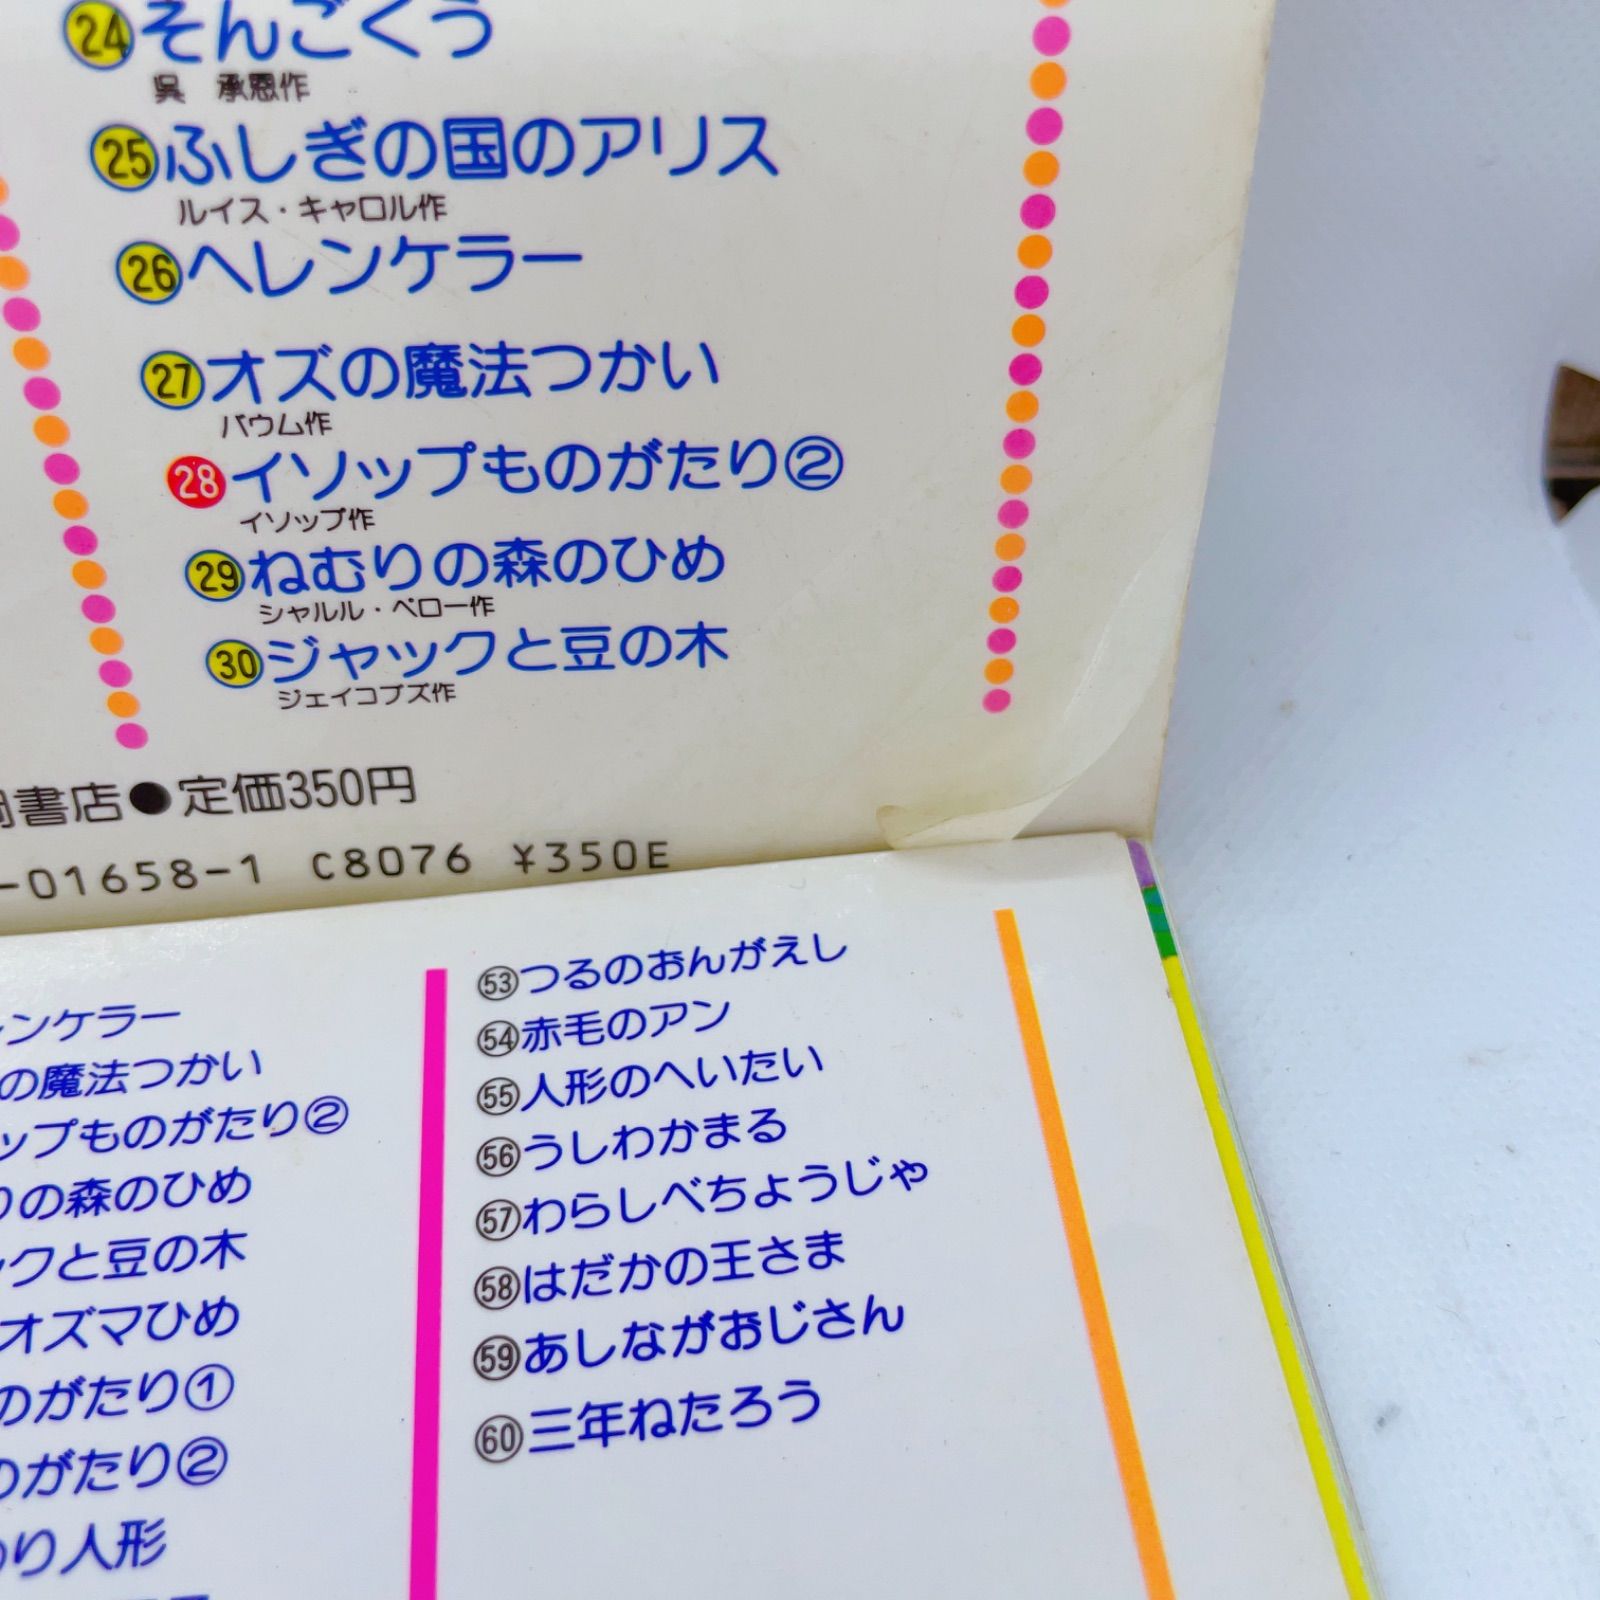 ㉔そんごくう
呉 承恩作
㉕ふしぎの国のアリス
ルイス・キャロル作
㉖ヘレンケラー
㉗オズの魔法つかい
バウム作
㉘イソップものがたり②
イソップ作
㉙ねむりの森のひめ
シャルル・ペロー作
㉚ジャックと豆の木
ジェイコブズ作
書店●定価350円
-01658-1 C8076 ¥350E
ンケラー
の魔法つかい
ップものがたり②
りの森のひめ
ックと豆の木
オズマひめ
のがたり①
のがたり②
り人形
53つるのおんがえし
54赤毛のアン
55人形のへいたい
56うしわかまる
57わらしべちょうじゃ
58はだかの王さま
59あしながおじさん
60三年ねたろう